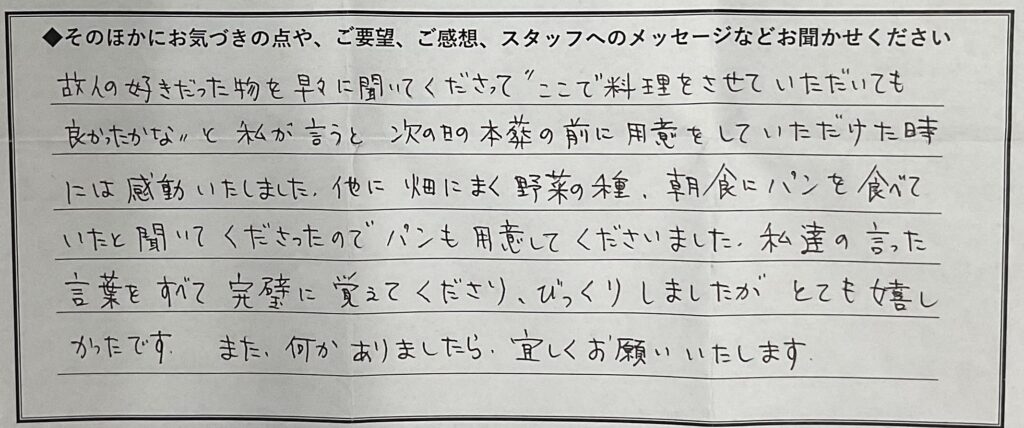 ◆そのほかにお気づきの点や、ご要望、ご感想、スタッフへのメッセージなどお聞かせください
故人の好きだった物を早々に聞いてくださって〝ここで料理をさせていただいても
良かったかな〟と私が言うと次の日の本葬の前に用意をしていただけた時
には感動いたしました。他に畑にまく野菜の種、朝食にパンを食べて
いたと聞いてくださったのでパンも用意してくださいました。私達の言った
言葉をすべて完璧に覚えてくださり、びっくりしましたがとても嬉し
かったです。また、何かありましたら、宜しくお願いいたします。